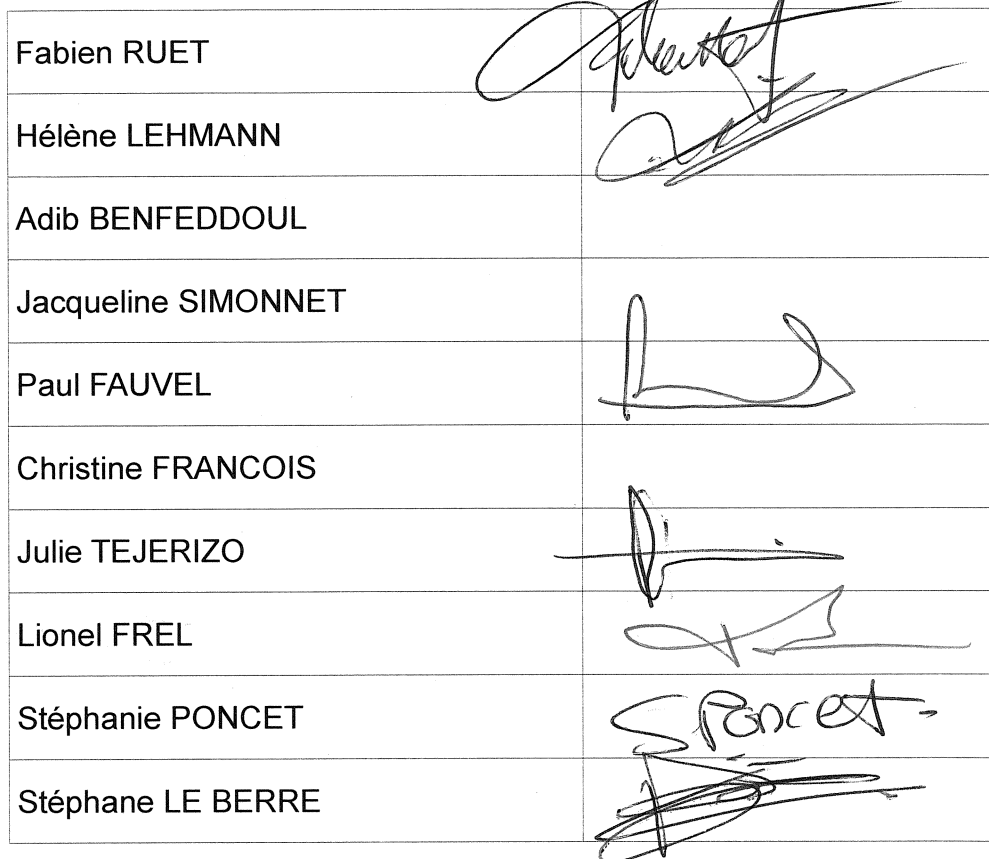 Fabien RUET
Hélène LEHMANN
Adib BENFEDDOUL
Jacqueline SIMONNET
Paul FAUVEL
Christine FRANCOIS
Julie TEJERIZO
Lionel FREL
Stéphanie PONCET SPoncet
Stéphane LE BERRE